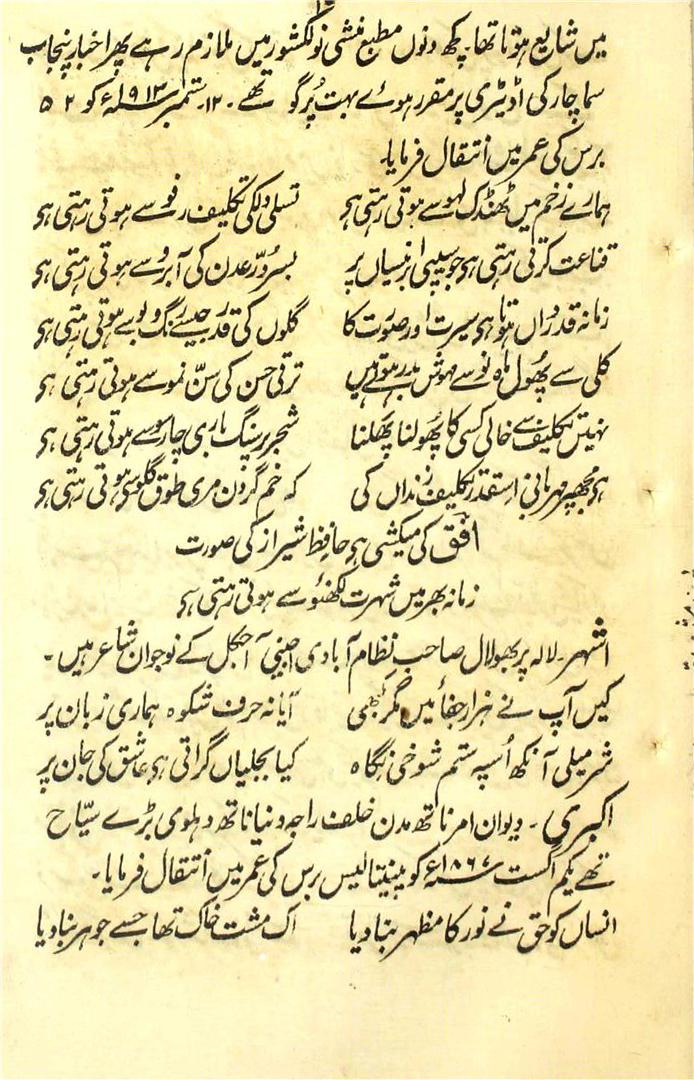 میں شایع ہوتا تھا۔ کچھ دنوں مطبع منشی نولکشور میں ملازم رہے پھر اخبار پنجاب
سماچار کی اڈیٹری پر مقرر ہوئے بہت پُرگو تھے۔ ۱۲۔ ستمبر ۱۹۱۳ء کو ۵۲
برس کی عمر میں انتقال فرمایا۔
ہمارے زخم میں ٹھنڈک لہو سے ہوتی رہتی ہی تسلی دل کی تکلیف رفو سے ہوتی رہتی ہی
قناعت کرتی رہتی ہی جو سیپی ابر نیساں پر بسر دُرِّ عدن کی آبرو سے ہوتی رہتی ہی
زمانہ قدرداں ہوتا ہی سیرت اور صورت کا گلوں کی قدر جیسے رنگ و بو سے ہوتی رہتی ہی
کلی سے پھول ماہ نو سے مہوش بدر ہوتے ہیں ترقی حسن کی سنّ نمو سے ہوتی رہتی ہی
نہیں تکلیف سے خالی کسی کا پھولنا پھلنا شجر پر سنگ باری چار سو سے ہوتی رہتی ہی
ہی مجھپر مہربانی اسقدر تکلیف زنداں کی کہ خم گردن مری طوق گلو سے ہوتی رہتی ہی
افق کی میکشی ہی حافظ شیراز کی صورت
زمانہ بھر میں شہرت لکھنؤ سے ہوتی رہتی ہی
اشہر۔ لالہ پربھولال صاحب نظام آبادی اجنبی آجکل کے نوجوان شاعر ہیں۔
کیں آپ نے ہزار جفائیں مگر کبھی آیا نہ حرف شکوہ ہماری زبان پر
شرمیلی آنکھ اُسپہ ستم شوخی نگاہ کیا بجلیاں گراتی ہی عاشق کی جان پر
اکبری۔ دیوان امرناتھ مدن خلف راجہ دنیاناتھ دہلوی بڑے سیّاح
تھے یکم اگست ۱۸۶۷ء کو پینتالیس برس کی عمر میں انتقال فرمایا۔
انساں کو حق نے نور کا مظہر بنا دیا اک مشت خاک تھا جسے جوہر بنا دیا